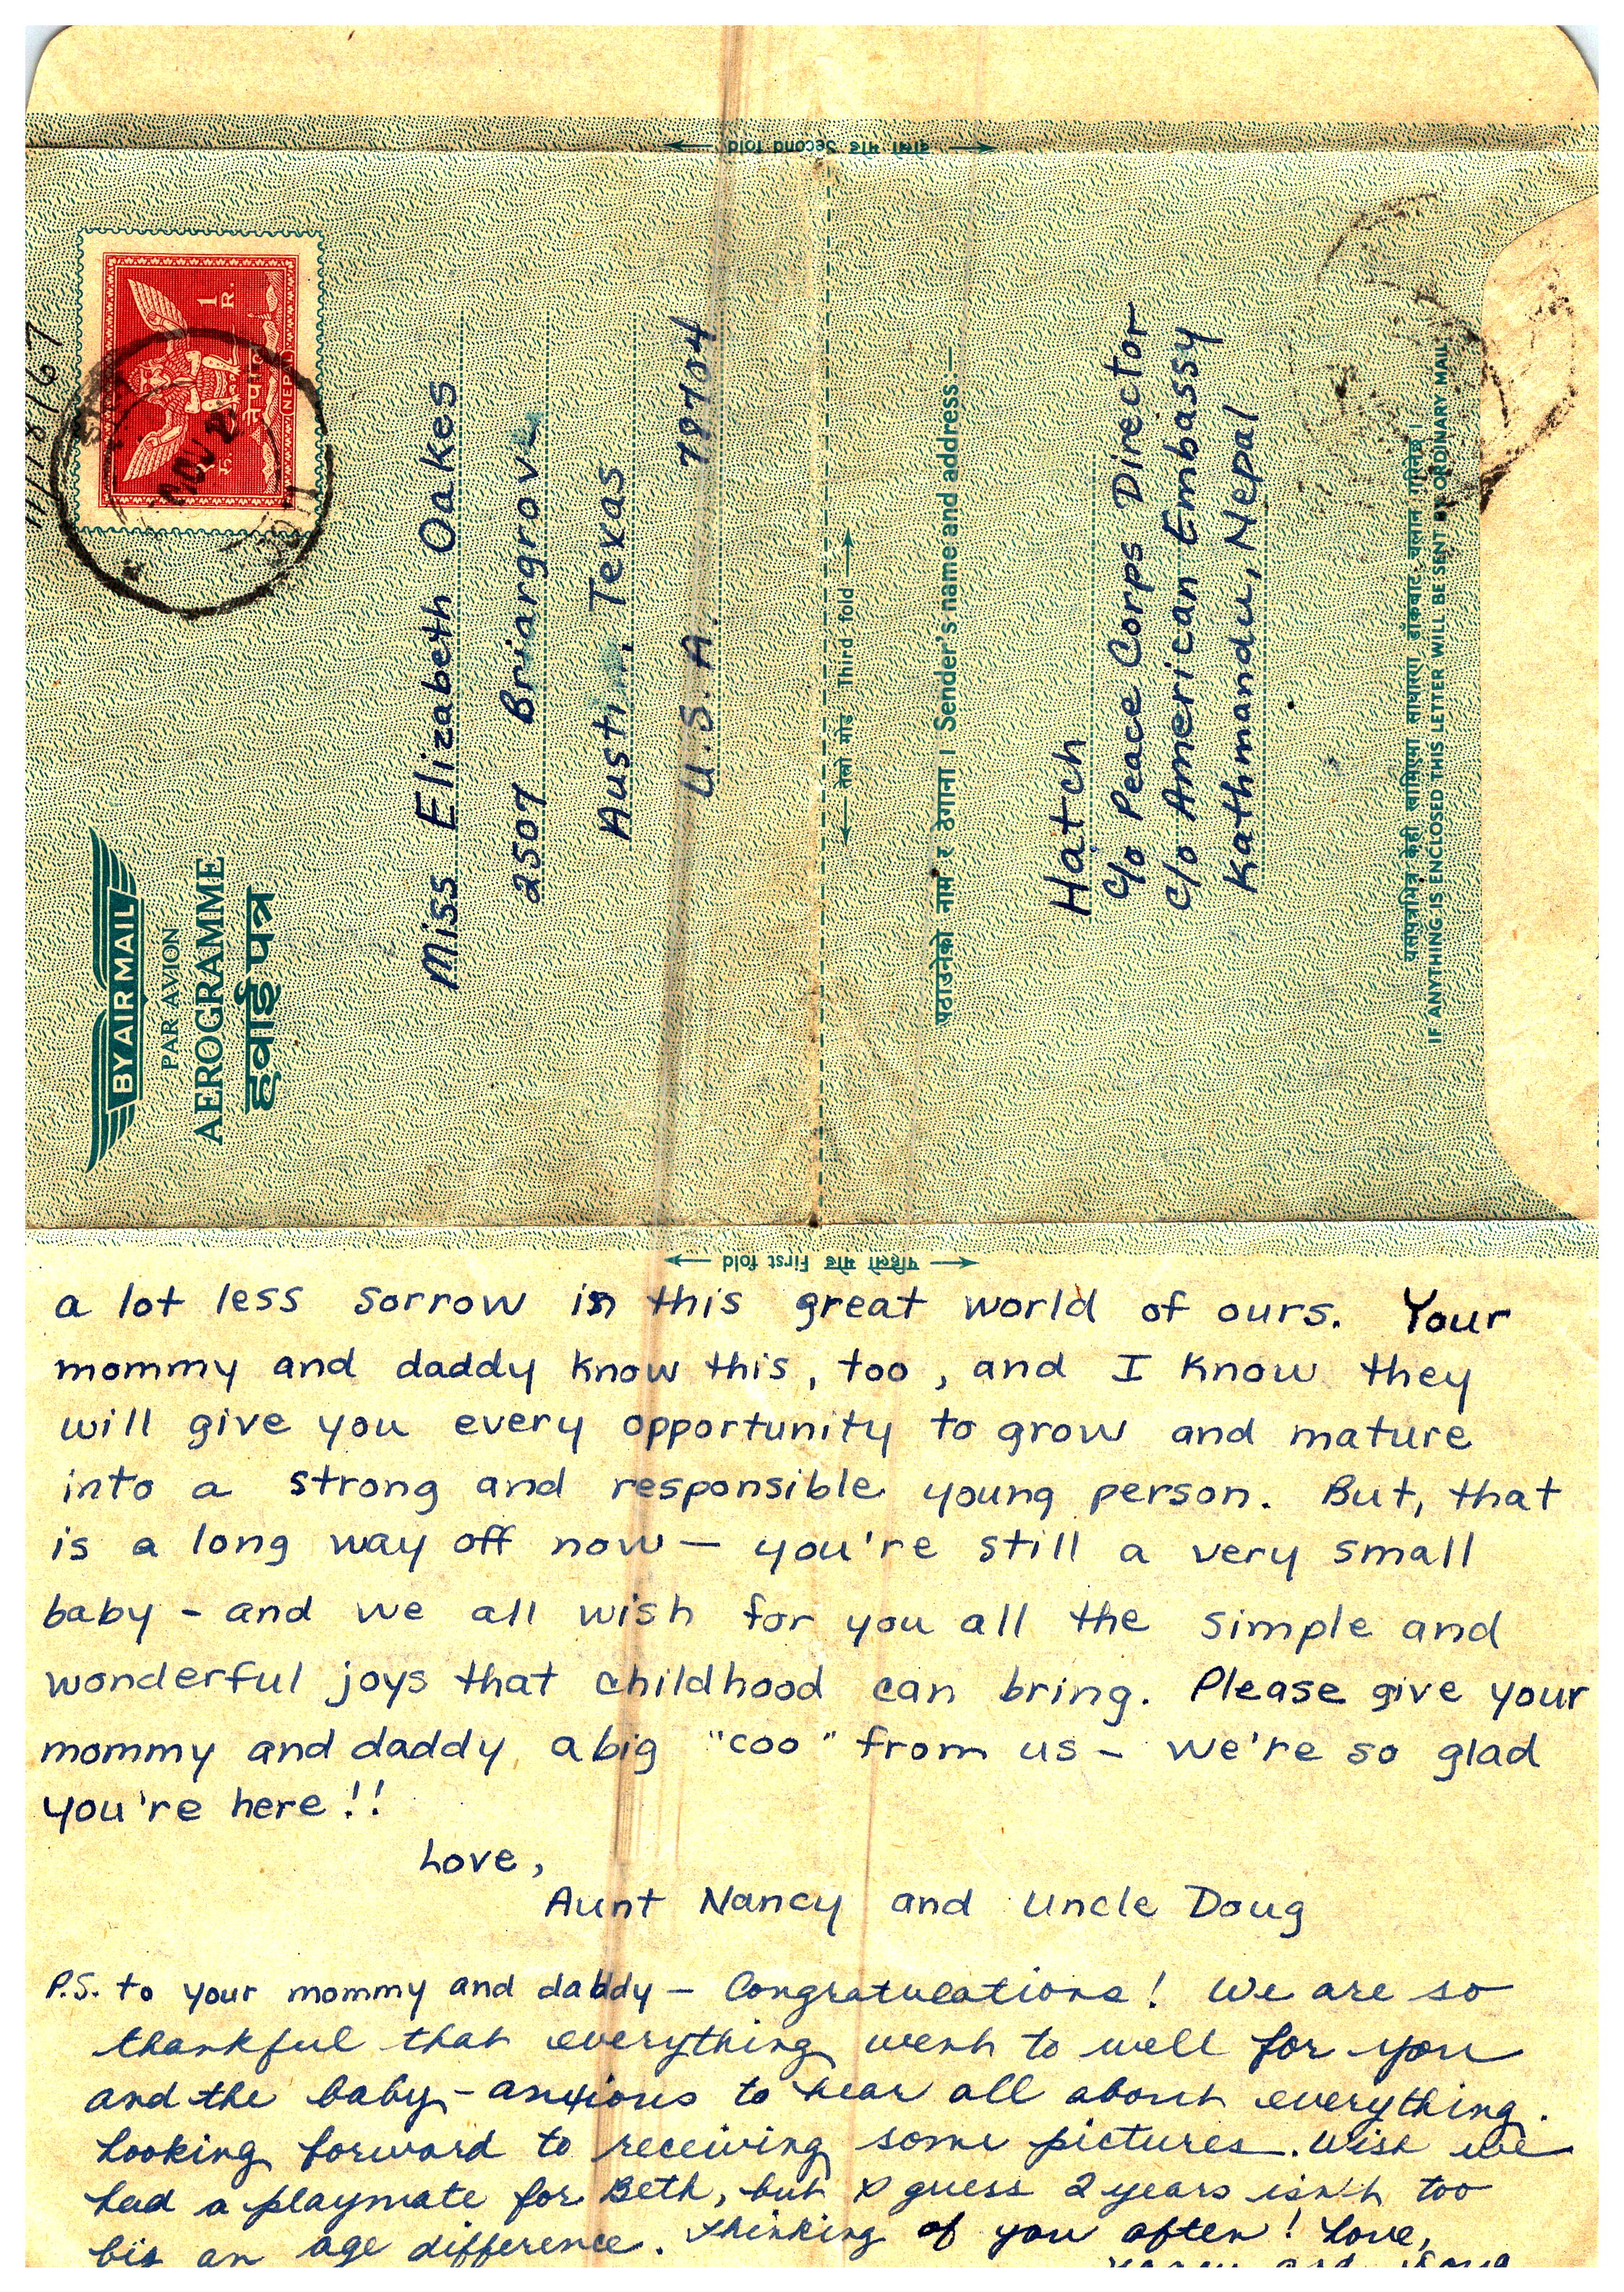 दोस्रो मोड Second fold
11/18/67
1 R.
नेपाल
NEPAL
NOV 2
BY AIR MAIL
PAR AVION
AEROGRAMME
हवाई पत्र
Miss Elizabeth Oakes
2507 Briargrove
Austin, Texas
U.S.A. 78704
तेस्रो मोड Third fold
पठाउनेको नाम र ठेगाना । Sender's name and address.—
Hatch
c/o Peace Corps Director
c/o American Embassy
Kathmandu, Nepal
यसपत्रभित्र केही खामिएमा साधारण डाकबाट चलान गरिनेछ ।
IF ANYTHING IS ENCLOSED THIS LETTER WILL BE SENT BY ORDINARY MAIL.
पहिलो मोड First fold
a lot less sorrow in this great world of ours. Your
mommy and daddy know this, too, and I know they
will give you every opportunity to grow and mature
into a strong and responsible young person. But, that
is a long way off now — you're still a very small
baby - and we all wish for you all the simple and
wonderful joys that childhood can bring. Please give your
mommy and daddy a big "coo" from us - we're so glad
you're here!!
Love,
Aunt Nancy and Uncle Doug
P.S. to your mommy and daddy — Congratulations! We are so
thankful that everything went to well for you
and the baby - anxious to hear all about everything.
Looking forward to receiving some pictures. Wish we
had a playmate for Beth, but I guess 2 years isn't too
big an age difference. Thinking of you often! Love,
Nancy and Doug